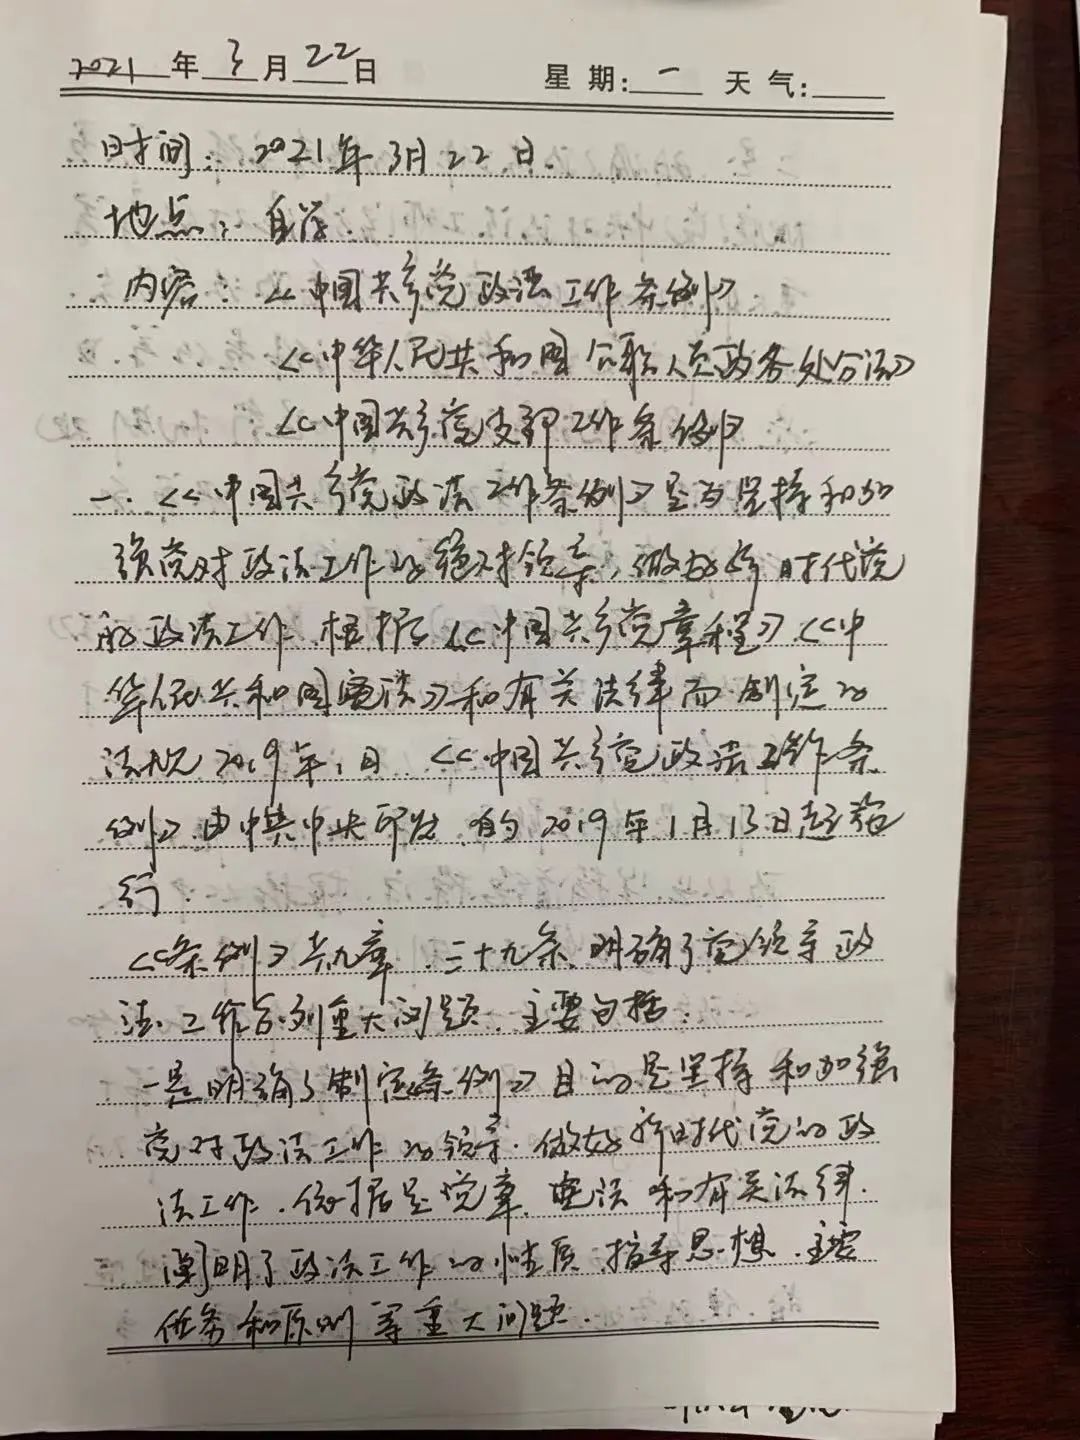 2021年3月22日 星期:一 天气:
时间：2021年3月22日.
地点：自学.
内容：《中国共产党政法工作条例》
《中华人民共和国公职人员政务处分法》
《中国共产党支部工作条例》
一.《中国共产党政法工作条例》是为坚持和加
强党对政法工作的绝对领导，做好新时代党
的政法工作.根据《中国共产党章程》《中
华人民共和国宪法》和有关法律而制定的
法规 2019年1月《中国共产党政法工作条
例》由中共中央印发.自 2019年1月13日起施
行.
《条例》共九章.三十九条.明确了党领导政
法工作系列重大问题.主要包括：
一是明确了制定《条例》目的是坚持和加强
党对政法工作的领导.做好新时代党的政
法工作.依据是党章.宪法和有关法律.
阐明了政法工作的性质.指导思想.主要
任务和原则等重大问题.